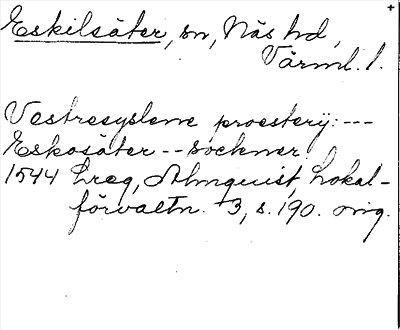 Eskilsäter, sn, Näs hd,
Värml. l.
Vestresyslene proesterij: ---
Eskosäter -- sockner.
1544 Lreg, Almquist, Lokal-
förvaltn. 3, s. 190. orig.